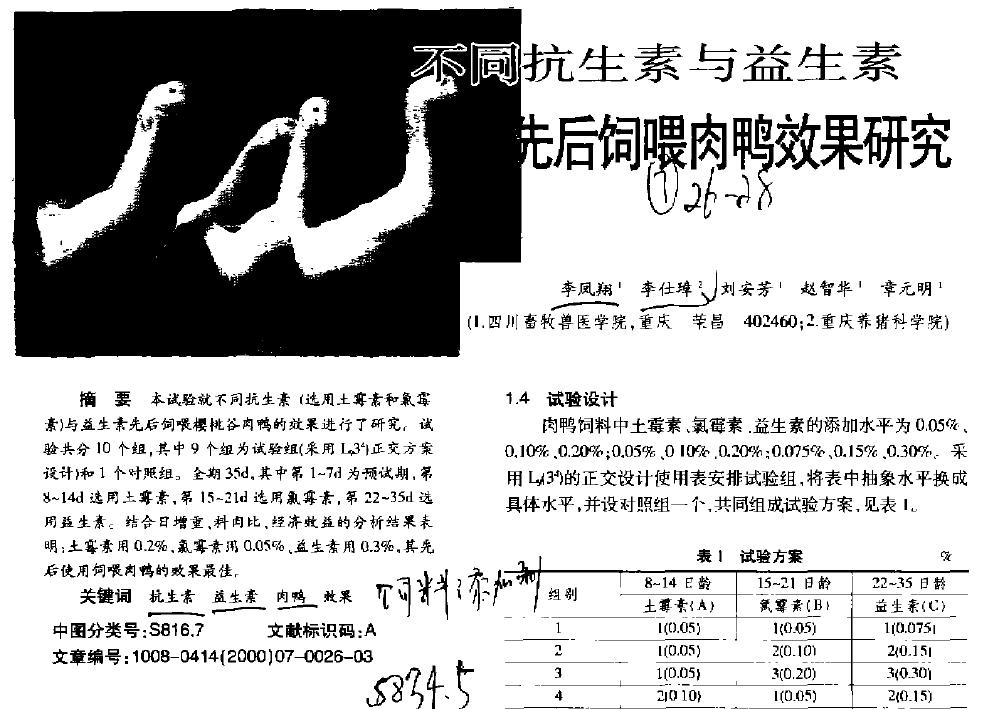 不同抗生素与益生素
先后饲喂肉鸭效果研究
① 26-28
李凤翔¹ 李仕璋² 刘安芳¹ 赵智华¹ 章元明¹
(1.四川畜牧兽医学院,重庆 荣昌 402460;2.重庆养猪科学院)
摘 要 本试验就不同抗生素(选用土霉素和氯霉
素)与益生素先后饲喂樱桃谷肉鸭的效果进行了研究。试
验共分10个组,其中9个组为试验组(采用L₉3⁴)正交方案
设计)和1个对照组。全期35d,其中第1~7d为预试期,第
8~14d选用土霉素,第15~21d选用氯霉素,第22~35d选
用益生素。结合日增重、料肉比、经济效益的分析结果表
明:土霉素用0.2%、氯霉素用0.05%、益生素用0.3%,其先
后使用饲喂肉鸭的效果最佳。
关键词 抗生素 益生素 肉鸭 效果
饲料添加剂
中图分类号:S816.7 文献标识码:A
文章编号:1008-0414(2000)07-0026-03
S834.5
1.4 试验设计
肉鸭饲料中土霉素、氯霉素、益生素的添加水平为0.05%、
0.10%、0.20%;0.05%、0.10%、0.20%;0.075%、0.15%、0.30%。采
用L₉(3⁴)的正交设计使用表安排试验组,将表中抽象水平换成
具体水平,并设对照组一个,共同组成试验方案,见表1。
表1 试验方案 %
组别 8~14日龄 15~21日龄 22~35日龄
土霉素(A) 氯霉素(B) 益生素(C)
1 1(0.05) 1(0.05) 1(0.075)
2 1(0.05) 2(0.10) 2(0.15)
3 1(0.05) 3(0.20) 3(0.30)
4 2(0.10) 1(0.05) 2(0.15)